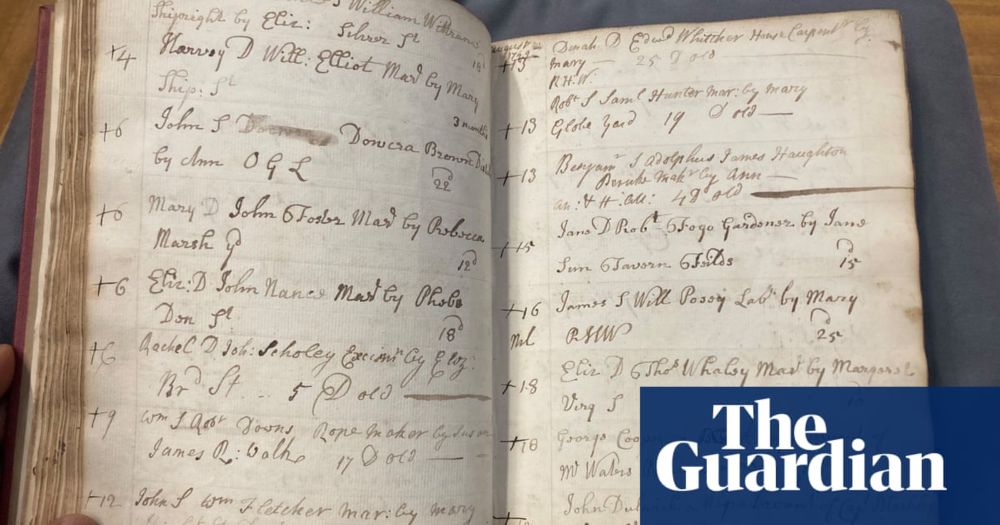 William
Shipright by Eliz: Silver St
+4 Harvey D Will: Elliot Mard by Mary
Ship: St
3 months
+6 John S Dowera Brown
by Ann O G L 22
+6 Mary D John Foster Mard by Rebecca
Marsh yd 12d
+6 Eliz: D John Nance Mard by Phebe
Don St 18d
+6 Rachel D Joh: Scholey by Eliz:
Brd St 5 D old
+9 Wm S Robt Downs Rope maker by Susan
James R: Walk 17 D old
+12 John S Wm Fletcher mar: by mary
+13 Dinah D Edwd Whitcher House Carpentr by
Mary 25 D old
R.H.W.
Robt S Saml Hunter mar: by mary
+13 Globe Yard 19 D old
+13 Benjamn S Adolphus James Haughton
Makr by Ann
4 D old
+15 Jane D Robt Fogo Gardener by Jane
Sun Tavern Feilds 15d
+16 James S Will Posey Labr by Mary
RHW 25d
+18 Eliz D Thos Whaley Mard by Margaret
Virg S
+18 George
Mr Waters
John
The
Guardian